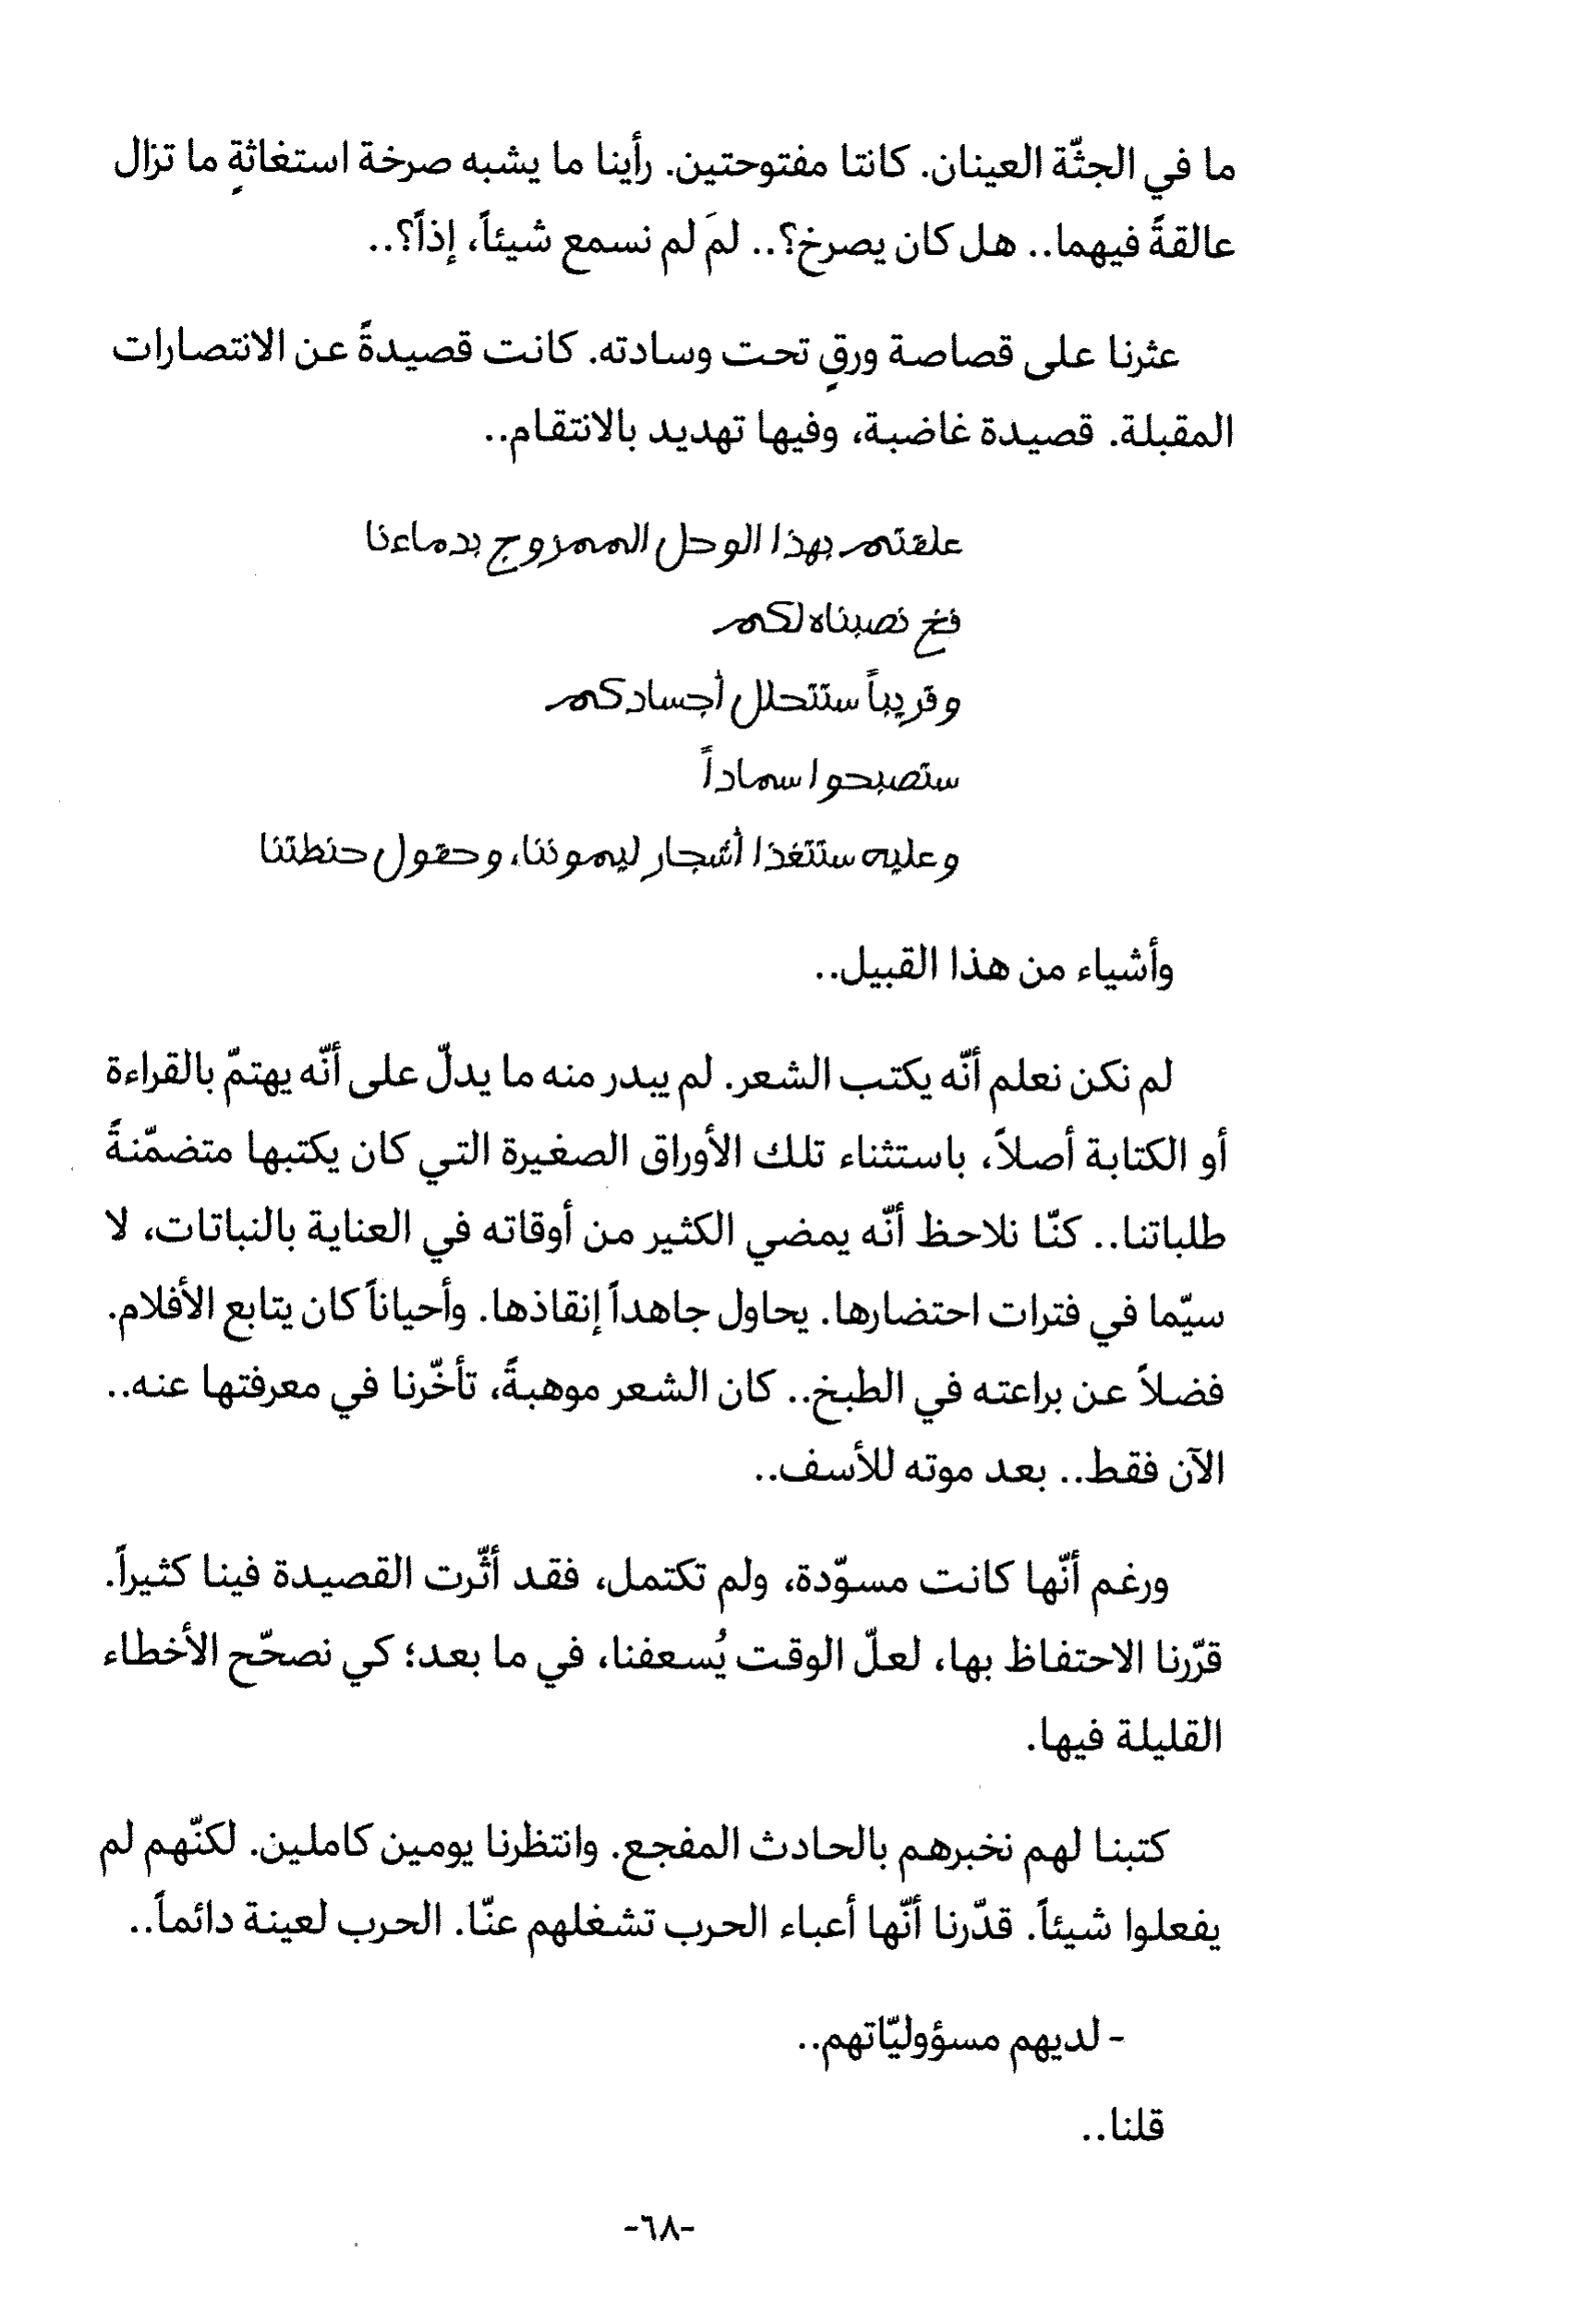 ما في الجثّة العينان. كانتا مفتوحتين. رأينا ما يشبه صرخة استغاثةٍ ما تزال
عالقةً فيهما.. هل كان يصرخ؟.. لمَ لم نسمع شيئاً، إذاً؟..
عثرنا على قصاصة ورقٍ تحت وسادته. كانت قصيدةً عن الانتصارات
المقبلة. قصيدة غاضبة، وفيها تهديد بالانتقام..
علقتم بهذا الوحل الممزوج بدماءنا
فخ نصبناه لكم
وقريباً ستتحلل أجسادكم
ستصبحوا سماداً
وعليه ستتغذا أشجار ليموننا، وحقول حنطتنا
وأشياء من هذا القبيل..
لم نكن نعلم أنّه يكتب الشعر. لم يبدر منه ما يدلّ على أنّه يهتمّ بالقراءة
أو الكتابة أصلاً، باستثناء تلك الأوراق الصغيرة التي كان يكتبها متضمّنةً
طلباتنا.. كنّا نلاحظ أنّه يمضي الكثير من أوقاته في العناية بالنباتات، لا
سيّما في فترات احتضارها. يحاول جاهداً إنقاذها. وأحياناً كان يتابع الأفلام.
فضلاً عن براعته في الطبخ.. كان الشعر موهبةً، تأخّرنا في معرفتها عنه..
الآن فقط.. بعد موته للأسف..
ورغم أنّها كانت مسوّدة، ولم تكتمل، فقد أثّرت القصيدة فينا كثيراً.
قرّرنا الاحتفاظ بها، لعلّ الوقت يُسعفنا، في ما بعد؛ كي نصحّح الأخطاء
القليلة فيها.
كتبنا لهم نخبرهم بالحادث المفجع. وانتظرنا يومين كاملين. لكنّهم لم
يفعلوا شيئاً. قدّرنا أنّها أعباء الحرب تشغلهم عنّا. الحرب لعينة دائماً..
- لديهم مسؤوليّاتهم..
قلنا..
-٦٨-